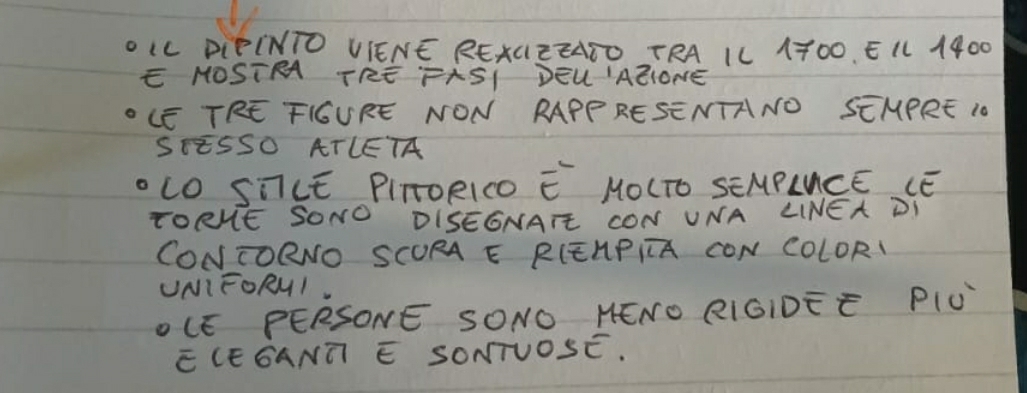 • IL DIPINTO VIENE REALIZZATO TRA IL 1700. E IL 1400
E MOSTRA TRE FASI DELL'AZIONE
• LE TRE FIGURE NON RAPPRESENTANO SEMPRE lo
STESSO ATLETA
• LO STILE PITTORICO È MOLTO SEMPLICE LE
FORME SONO DISEGNATE CON UNA LINEA DI
CONTORNO SCURA E RIEMPITA CON COLORI
UNIFORMI.
• LE PERSONE SONO MENO RIGIDE E PIÙ
ELEGANTI E SONTUOSE.